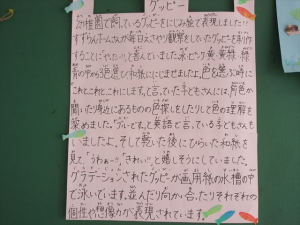 グッピー
幼稚園で飼っているグッピーをにじみ絵で表現しました!!
すずらんホームさんが毎日えさやり観察をしていたグッピーを制作
することに"やったー!!"と喜んでいました。水・ピンク・黄・黄緑・緑
青の中から3色選び和紙ににじませました。色を選ぶ時に
これとこれとこれにします。と言っていた子どもさんには何色か
聞いたり身近にあるものの色探しをしたりして色の理解を
深めました。"ブルーです。"と英語で言っている子どもさんも
いましたよ。そして乾いた後にひらいた和紙を
見て"うわぁ~!!""きれい!!"と嬉しそうにしていました。
グラデーションされたグッピーが画用紙の水槽の中
で泳いでいます。並んだり向かい合ったりそれぞれの
個性や想像力が表現されています。